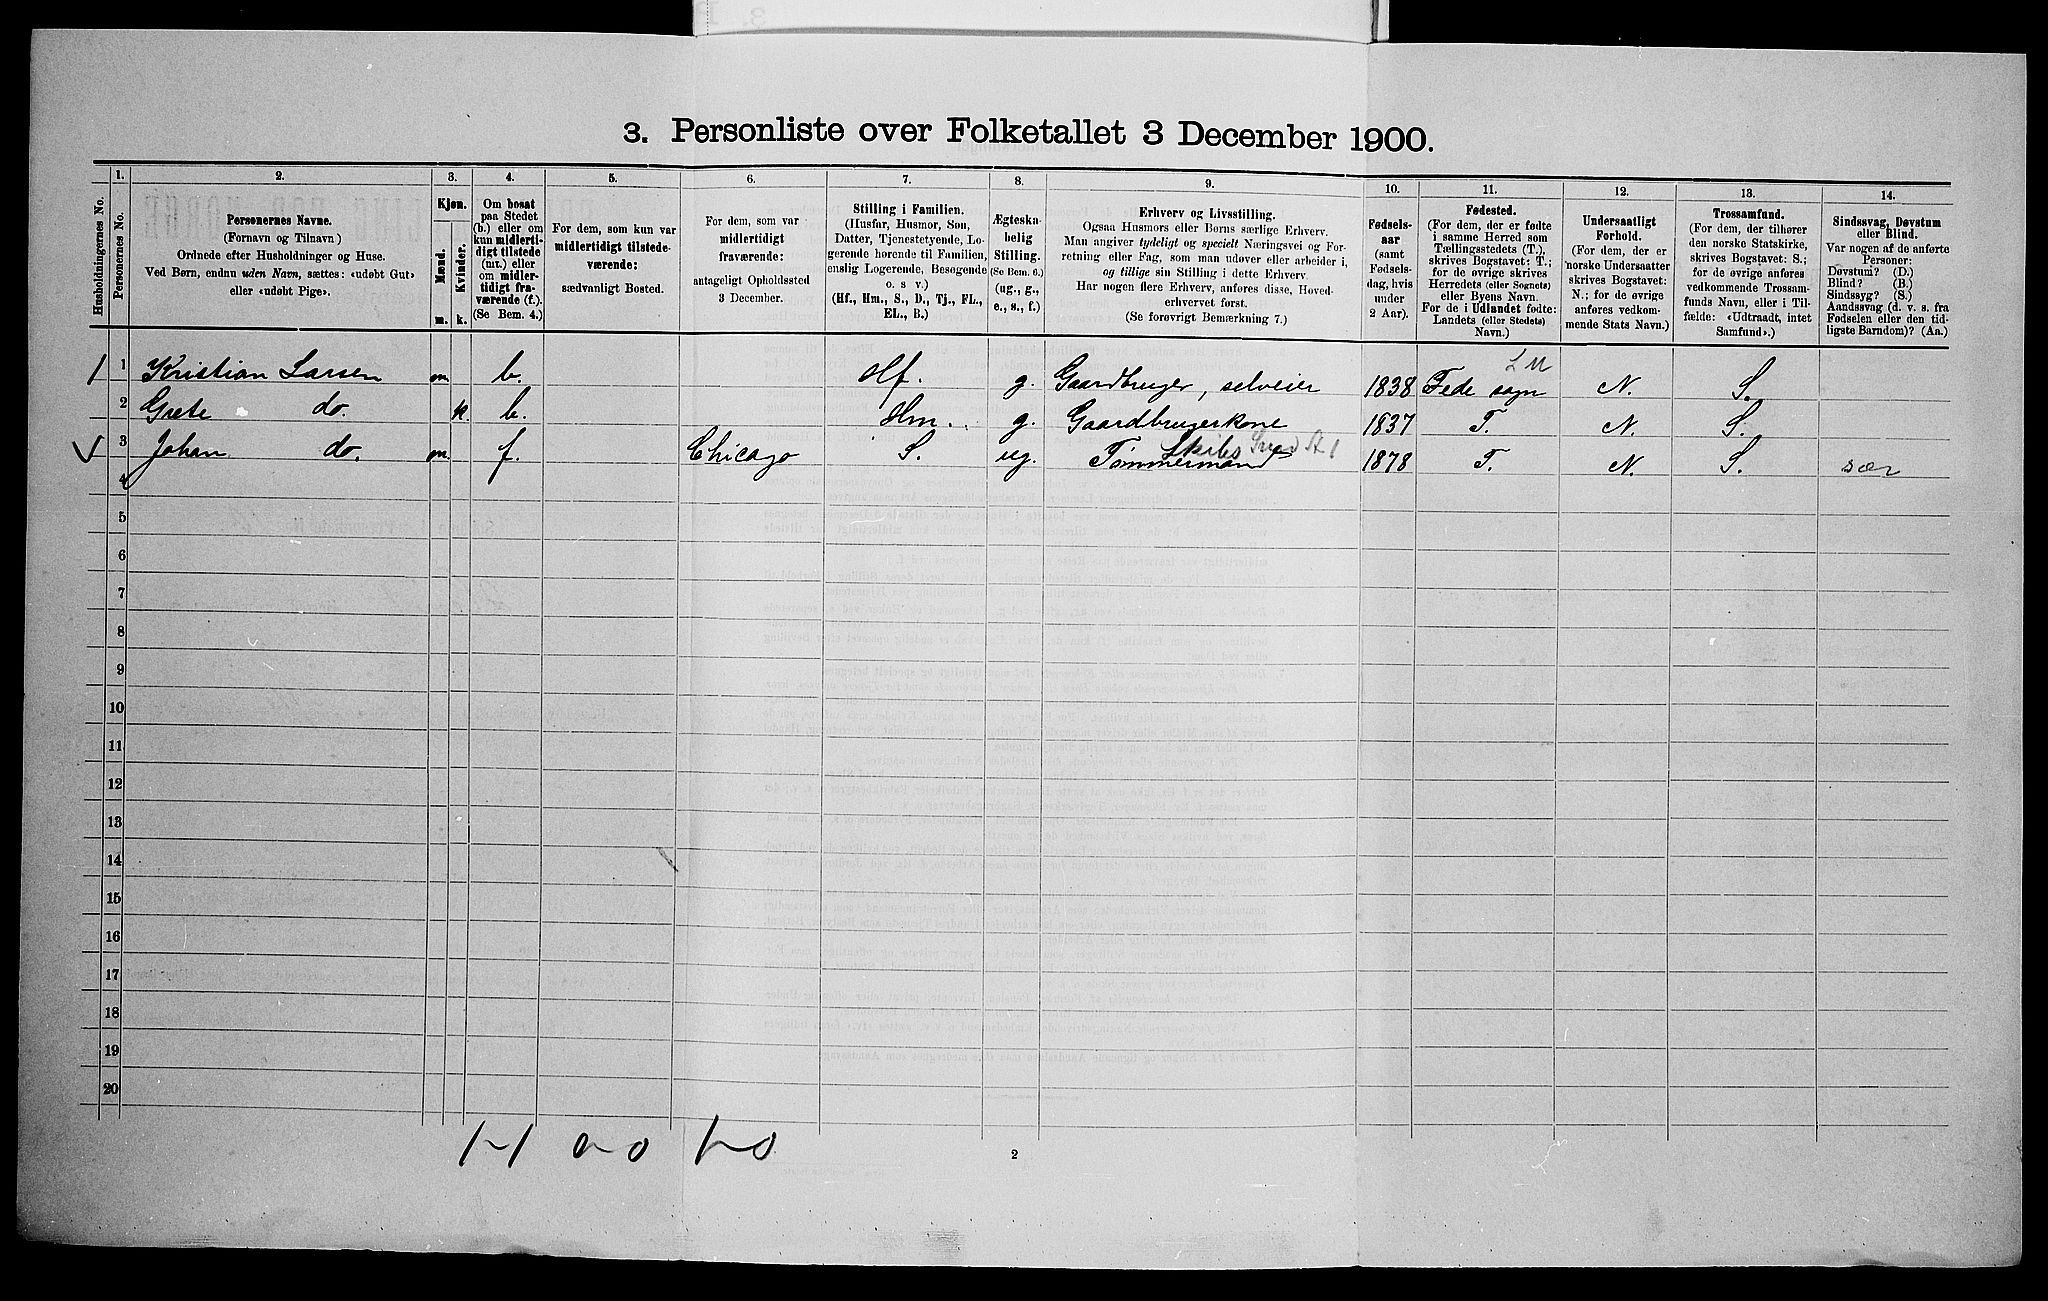 3. Personliste over Folketallet 3 December 1900.
Husholdningernes No.
1.
Personernes No.
2.
Personernes Navne.
(Fornavn og Tilnavn)
Ordnede efter Husholdninger og Huse.
Ved Børn, endnu uden Navn, sættes: «udøbt Gut»
eller «udøbt Pige».
3.
Kjøn.
Mænd.
Kvinder.
m.
k.
4.
Om bosat
paa Stedet
(b.) eller om
kun midlerti-
digt tilstede
(mt.) eller
om midler-
tidigt fra-
værende (f.).
(Se Bem. 4.)
5.
For dem, som kun var
midlertidigt tilstede-
værende:
sædvanligt Bosted.
6.
For dem, som var
midlertidigt
fraværende:
antageligt Opholdssted
3 December.
7.
Stilling i Familien.
(Husfar, Husmor, Søn,
Datter, Tjenestetyende, Lo-
gerende hørende til Familien,
enslig Logerende, Besøgende
o. s v.)
(Hf., Hm., S., D., Tj., FL.,
EL., B.)
8.
Ægteska-
belig
Stilling.
(Se Bem. 6.)
(ug., g.,
e., s., f.)
9.
Erhverv og Livsstilling.
Ogsaa Husmors eller Børns særlige Erhverv.
Man angiver tydeligt og specielt Næringsvei og For-
retning eller Fag, som man udøver eller arbeider i,
og tillige sin Stilling i dette Erhverv.
Har nogen flere Erhverv, anføres disse, Hoved-
erhvervet først.
(Se forøvrigt Bemærkning 7.)
10.
Fødsels-
aar
(samt
Fødsels-
dag, hvis
under
2 Aar).
11.
Fødested.
(For dem, der er fødte
i samme Herred som
Tællingsstedets (T.),
skrives Bogstavet: T.;
for de øvrige skrives
Herredets (eller Sognets)
eller Byens Navn.
For de i Udlandet fødte:
Landets (eller Stedets)
Navn.)
12.
Undersaatligt
Forhold.
(For dem, der er
norske Undersaatter
skrives Bogstavet:
N.; for de øvrige
anføres vedkom-
mende Stats Navn.)
13.
Trossamfund.
(For dem, der tilhører
den norske Statskirke,
skrives Bogstavet: S.;
for de øvrige anføres
vedkommende Trossam-
funds Navn, eller i Til-
fælde: «Udtraadt, intet
Samfund».)
14.
Sindssvag, Døvstum
eller Blind.
Var nogen af de anførte
Personer:
Døvstum? (D.)
Blind? (B.)
Sindssyg? (S.)
Aandssvag (d. v. s. fra
Fødselen eller den tid-
ligste Barndom)? (Aa.)
1 1 Kristian Larsen m. b. Hf. g. Gaardbruger, selveier 1838 Fede sogn N. S.
2 Grete do. k. b. Hm. g. Gaardbrugerkone 1837 T. N. S.
Skibs
3 Johan do. m. f. Chicago S. ug. Tømmermand 1878 T. N. S.
4
5
6
7
8
9
10
11
12
13
14
15
16
17
18
19
20
1-1 0-0 1-0
2